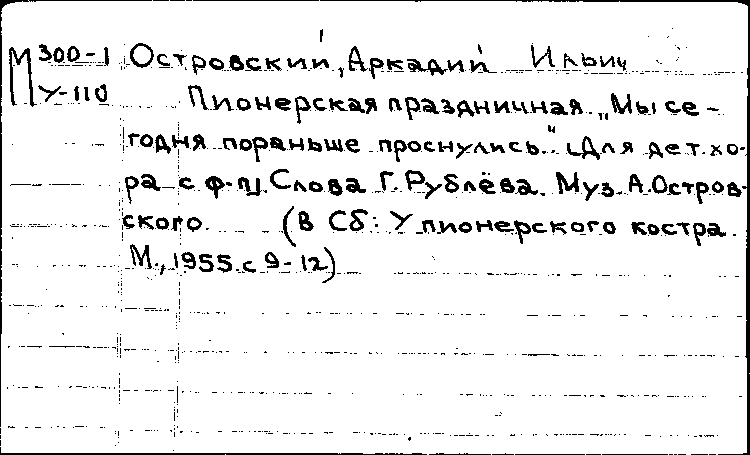 М 300-1 Островский, Аркадий Ильич
У-110 Пионерская праздничная. „Мы се-
годня пораньше проснулись.." [Для дет. хо-
ра с ф-п]. Слова Г. Рублёва. Муз. А. Остров-
ского. (В сб: У пионерского костра.
М., 1955. с 9-12)